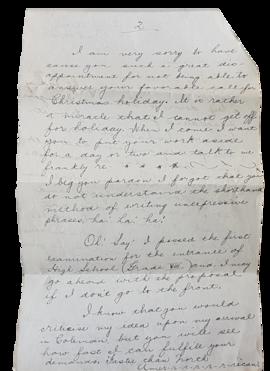 2
I am very sorry to have
cause you such a great dis-
appointment for not being able to
answer your favorable call for
Christmas holiday. It is rather
a miracle that I cannot get off
for holiday. When I come I want
you to put your work aside
for a day or two and talk to me
frankly re
I beg you pardon I forgot that you
do not understand the shorthand
method of writing unexpressive
phrases, ha! ha! ha!
Oh! Say! I passed the first
examination for the entrance of
High School (Grade VIII) and I may
go ahead with the proposal
if I don't go to the front.
I know that you would
criticise my idea upon my arrival
in Coleman, but you will see
how fast I can fulfill your
demands, faster than North